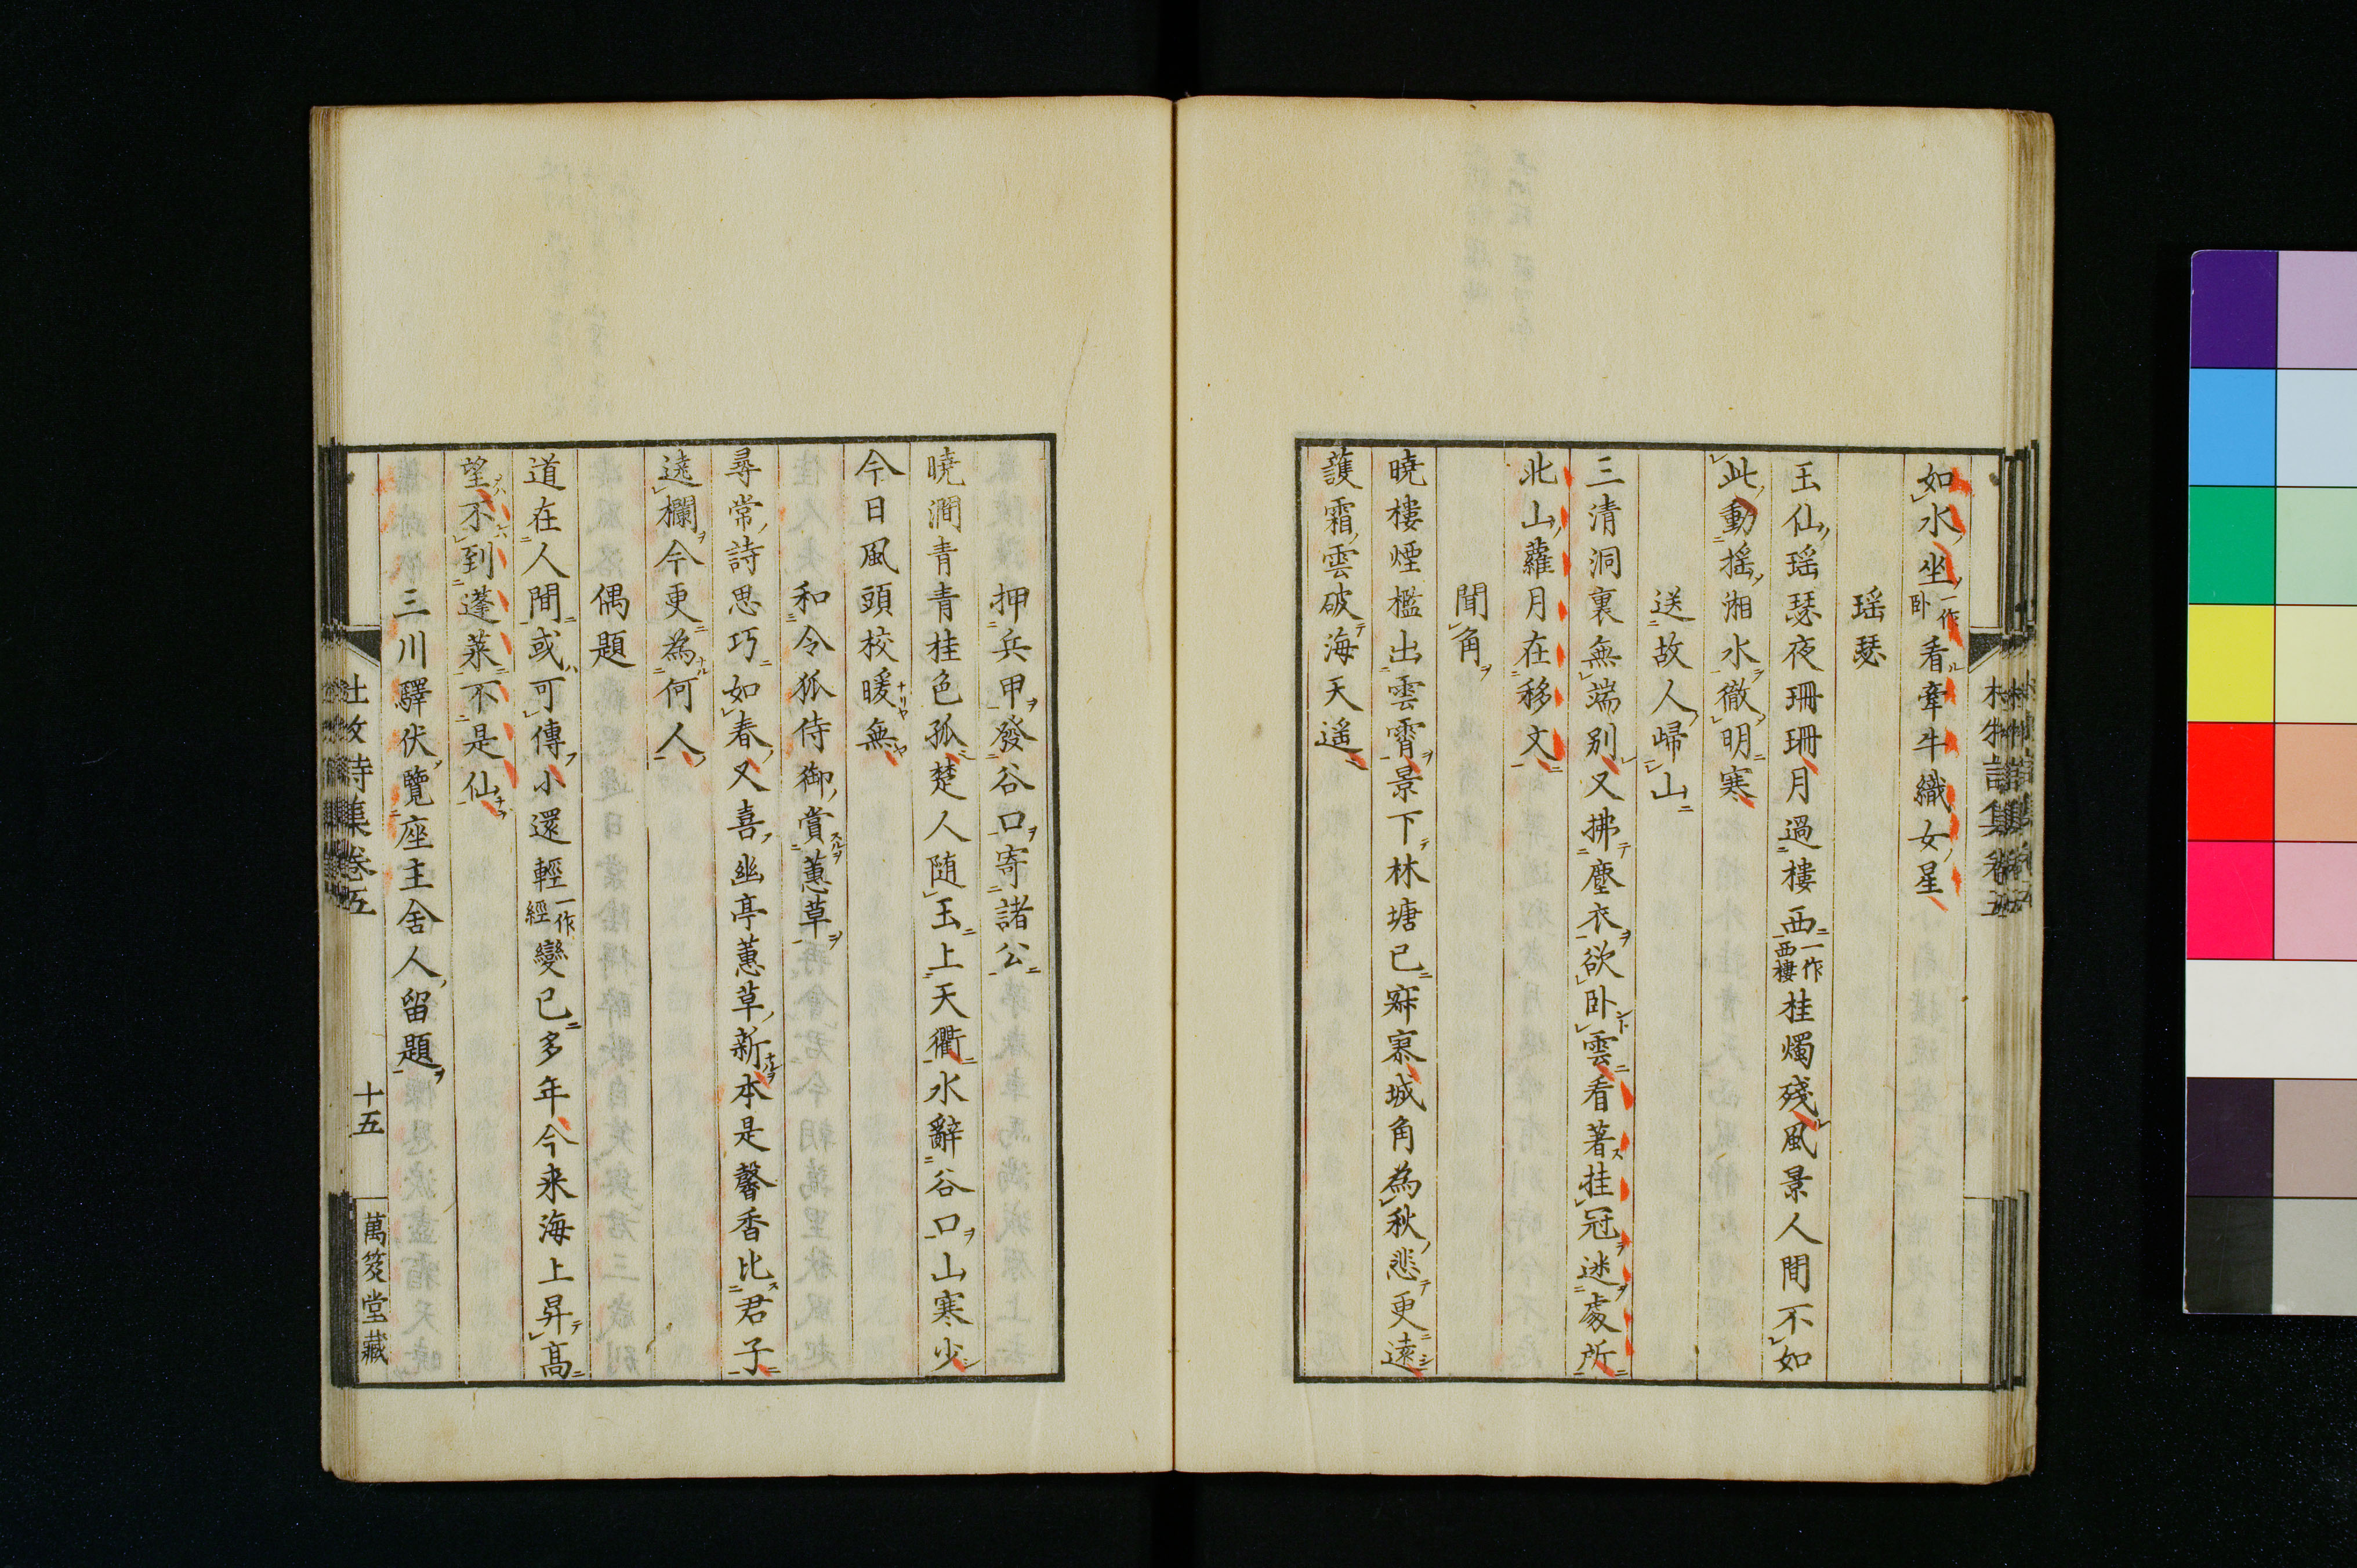 如水坐一作卧看牽牛織女星
瑶瑟
玉仙瑶瑟夜珊珊月過樓西一作西樓桂燭殘風景人間不如
此動揺湘水徹明寒
送故人歸山
三清洞裏無端別又拂塵衣欲卧雲看著挂冠迷處所
北山蘿月在移文
聞角
曉樓煙檻出雲霄景下林塘已寂寥城角為秋悲更遠
護霜雲破海天遥
押兵甲發谷口寄諸公
曉澗青青桂色孤楚人随玉上天衢水辭谷口山寒少
今日風頭校暖無
和令狐侍御賞蕙草
尋常詩思巧如春又喜幽亭蕙草新本是馨香比君子
遶欄今更為何人
偶題
道在人間或可傳小還輕一作經變已多年今来海上昇高
望不到蓬萊不是仙
三川驛伏覽座主舍人留題
杜牧詩集卷五
十五
萬笈堂藏